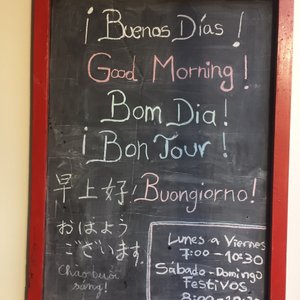 ¡ Buenos Días !
Good Morning !
Bom Dia !
¡ Bon Tour !
早上好 ! Buongiorno !
おはよう
ございます.
Chào buổi
sáng !
Lunes a Viernes
7:00 - 10:30
Sábado - Domingo
Festivos
8:00 - 10:30